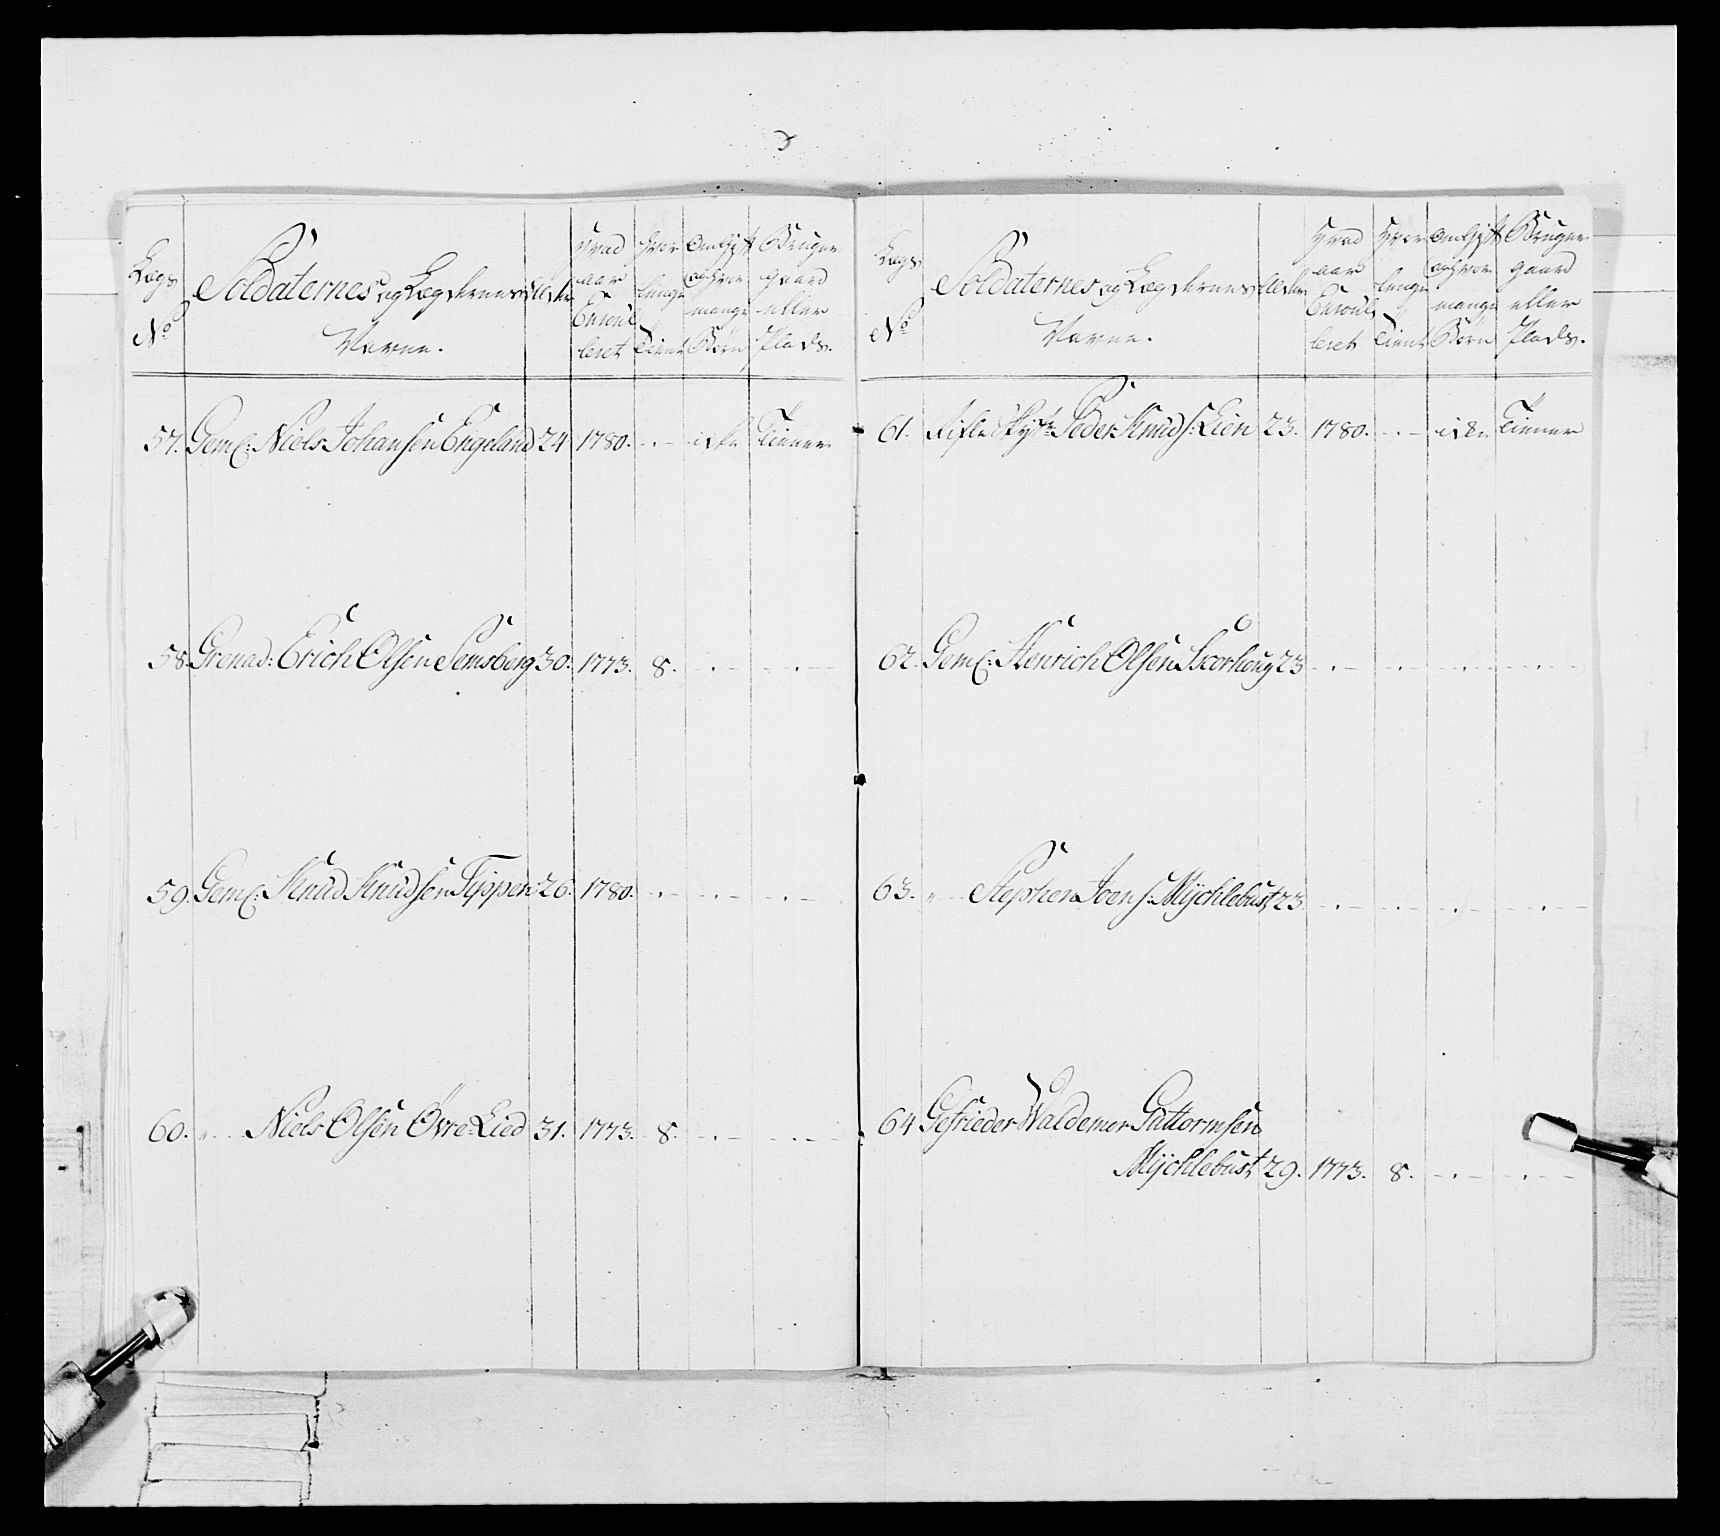 Lægs No
Soldaternes og Lægdernes Navne.
Alder
Hvad aar Enroul leret
Hvor lenge Tient
Om Gift og hvor mange Børn
Bruger gaard eller Plads.
57. Gem: Niels Johansen Engeland 24 1780. - . - icke Tiener
58. Grenad: Erich Olsen Semsberg 30. 1773. 8. - . - - . -
59. Gem: Knud Knudsen Tippen 26. 1780. - . - - . - - . -
60. " Niels Olsen Øvre-Lied 31. 1773. 8. - . - - . -
Lægs No
Soldaternes og Lægdernes Navne.
Alder
Hvad aar Enroul leret
Hvor lenge Tient
Om Gift og hvor mange Børn
Bruger gaard eller Plads.
61. Rifle Peder Knuds: Lien 23. 1780. - . - icke Tiener
62. Gem: Henrich Olsen Scorhoug 23 - . - - . - - . - - . -
63. " Stephen Joens: Mÿchlebust 23. - . - - . - - . - - . -
64 Gefrieder Waldemer Guttormsen
Mÿchlebust 29. 1773. 8. - . - - . -